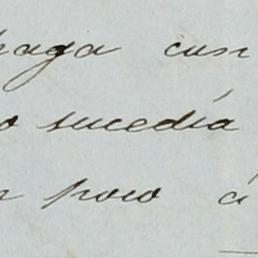 haga cun
o sucedía
poco á